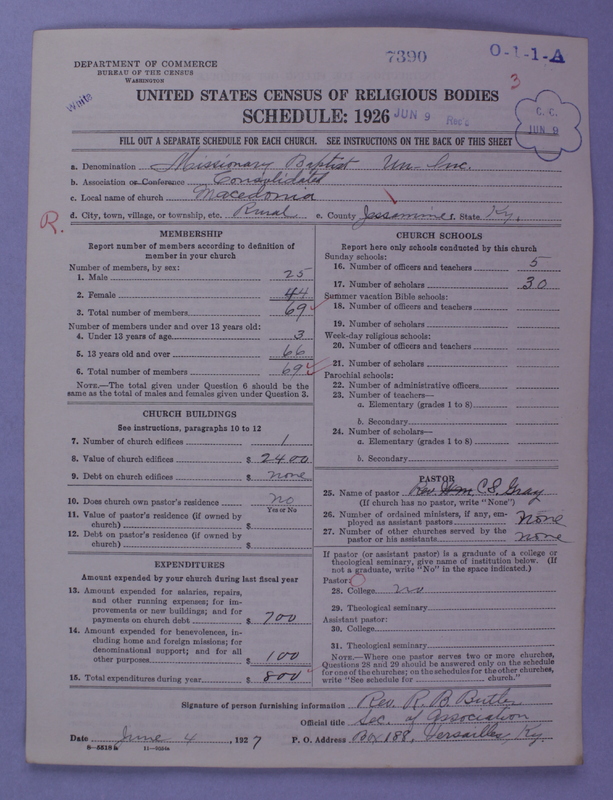 7390
O-1-1-A
DEPARTMENT OF COMMERCE
BUREAU OF THE CENSUS
WASHINGTON
White
3
UNITED STATES CENSUS OF RELIGIOUS BODIES
SCHEDULE: 1926
JUN 9 Rec'd
C. C.
JUN 9
FILL OUT A SEPARATE SCHEDULE FOR EACH CHURCH. SEE INSTRUCTIONS ON THE BACK OF THIS SHEET
a. Denomination Missionary Baptist Un-Inc.
b. Association or Conference Consolidated
c. Local name of church Macedonia
d. City, town, village, or township, etc. Rural e. County Jessamine f. State Ky.
R.
MEMBERSHIP
Report number of members according to definition of
member in your church
Number of members, by sex:
1. Male 25
2. Female 44
3. Total number of members 69
Number of members under and over 13 years old:
4. Under 13 years of age 3
5. 13 years old and over 66
6. Total number of members 69
NOTE.—The total given under Question 6 should be the
same as the total of males and females given under Question 3.
CHURCH BUILDINGS
See instructions, paragraphs 10 to 12
7. Number of church edifices 1
8. Value of church edifices $ 2400
9. Debt on church edifices $ none
10. Does church own pastor's residence no
Yes or No
11. Value of pastor's residence (if owned by
church) $
12. Debt on pastor's residence (if owned by
church) $
EXPENDITURES
Amount expended by your church during last fiscal year
13. Amount expended for salaries, repairs,
and other running expenses; for im-
provements or new buildings; and for
payments on church debt $ 700
14. Amount expended for benevolences, in-
cluding home and foreign missions; for
denominational support; and for all
other purposes $ 100
15. Total expenditures during year $ 800
CHURCH SCHOOLS
Report here only schools conducted by this church
Sunday schools:
16. Number of officers and teachers 5
17. Number of scholars 30
Summer vacation Bible schools:
18. Number of officers and teachers
19. Number of scholars
Week-day religious schools:
20. Number of officers and teachers
21. Number of scholars
Parochial schools:
22. Number of administrative officers
23. Number of teachers—
a. Elementary (grades 1 to 8)
b. Secondary
24. Number of scholars—
a. Elementary (grades 1 to 8)
b. Secondary
PASTOR
25. Name of pastor Rev. Wm C.S. Gray
(If church has no pastor, write "None")
26. Number of ordained ministers, if any, em-
ployed as assistant pastors none
27. Number of other churches served by the
pastor or his assistants none
If pastor (or assistant pastor) is a graduate of a college or
theological seminary, give name of institution below. (If
not a graduate, write "No" in the space indicated.)
Pastor:
28. College no
29. Theological seminary
Assistant pastor:
30. College
31. Theological seminary
NOTE.—Where one pastor serves two or more churches,
Questions 28 and 29 should be answered only on the schedule
for one of the churches; on the schedules for the other churches,
write "See schedule for church."
Signature of person furnishing information Rev. R. B. Butler
Official title Sec. of Association
Date June 4, 1927 P. O. Address Box 188, Versailles, Ky.
8—5518a 11—9034a